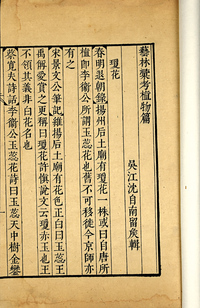 藝林彙考植物篇
吳江沈自南留矦輯
瓊花
春明退朝錄揚州后土廟有瓊花一株或曰自唐所
植即李衞公所謂玉蕊花也舊不可移徙今京師亦
有之
宋景文公筆記維揚后土廟有花色正白曰玉蕊王
禹偁愛賞之更稱曰瓊花詩慨說文云瓊亦玉也王
不領其義非白花名也
蔡寬夫詩話李衞公玉蕊花詩曰玉蕊天中樹金鑾